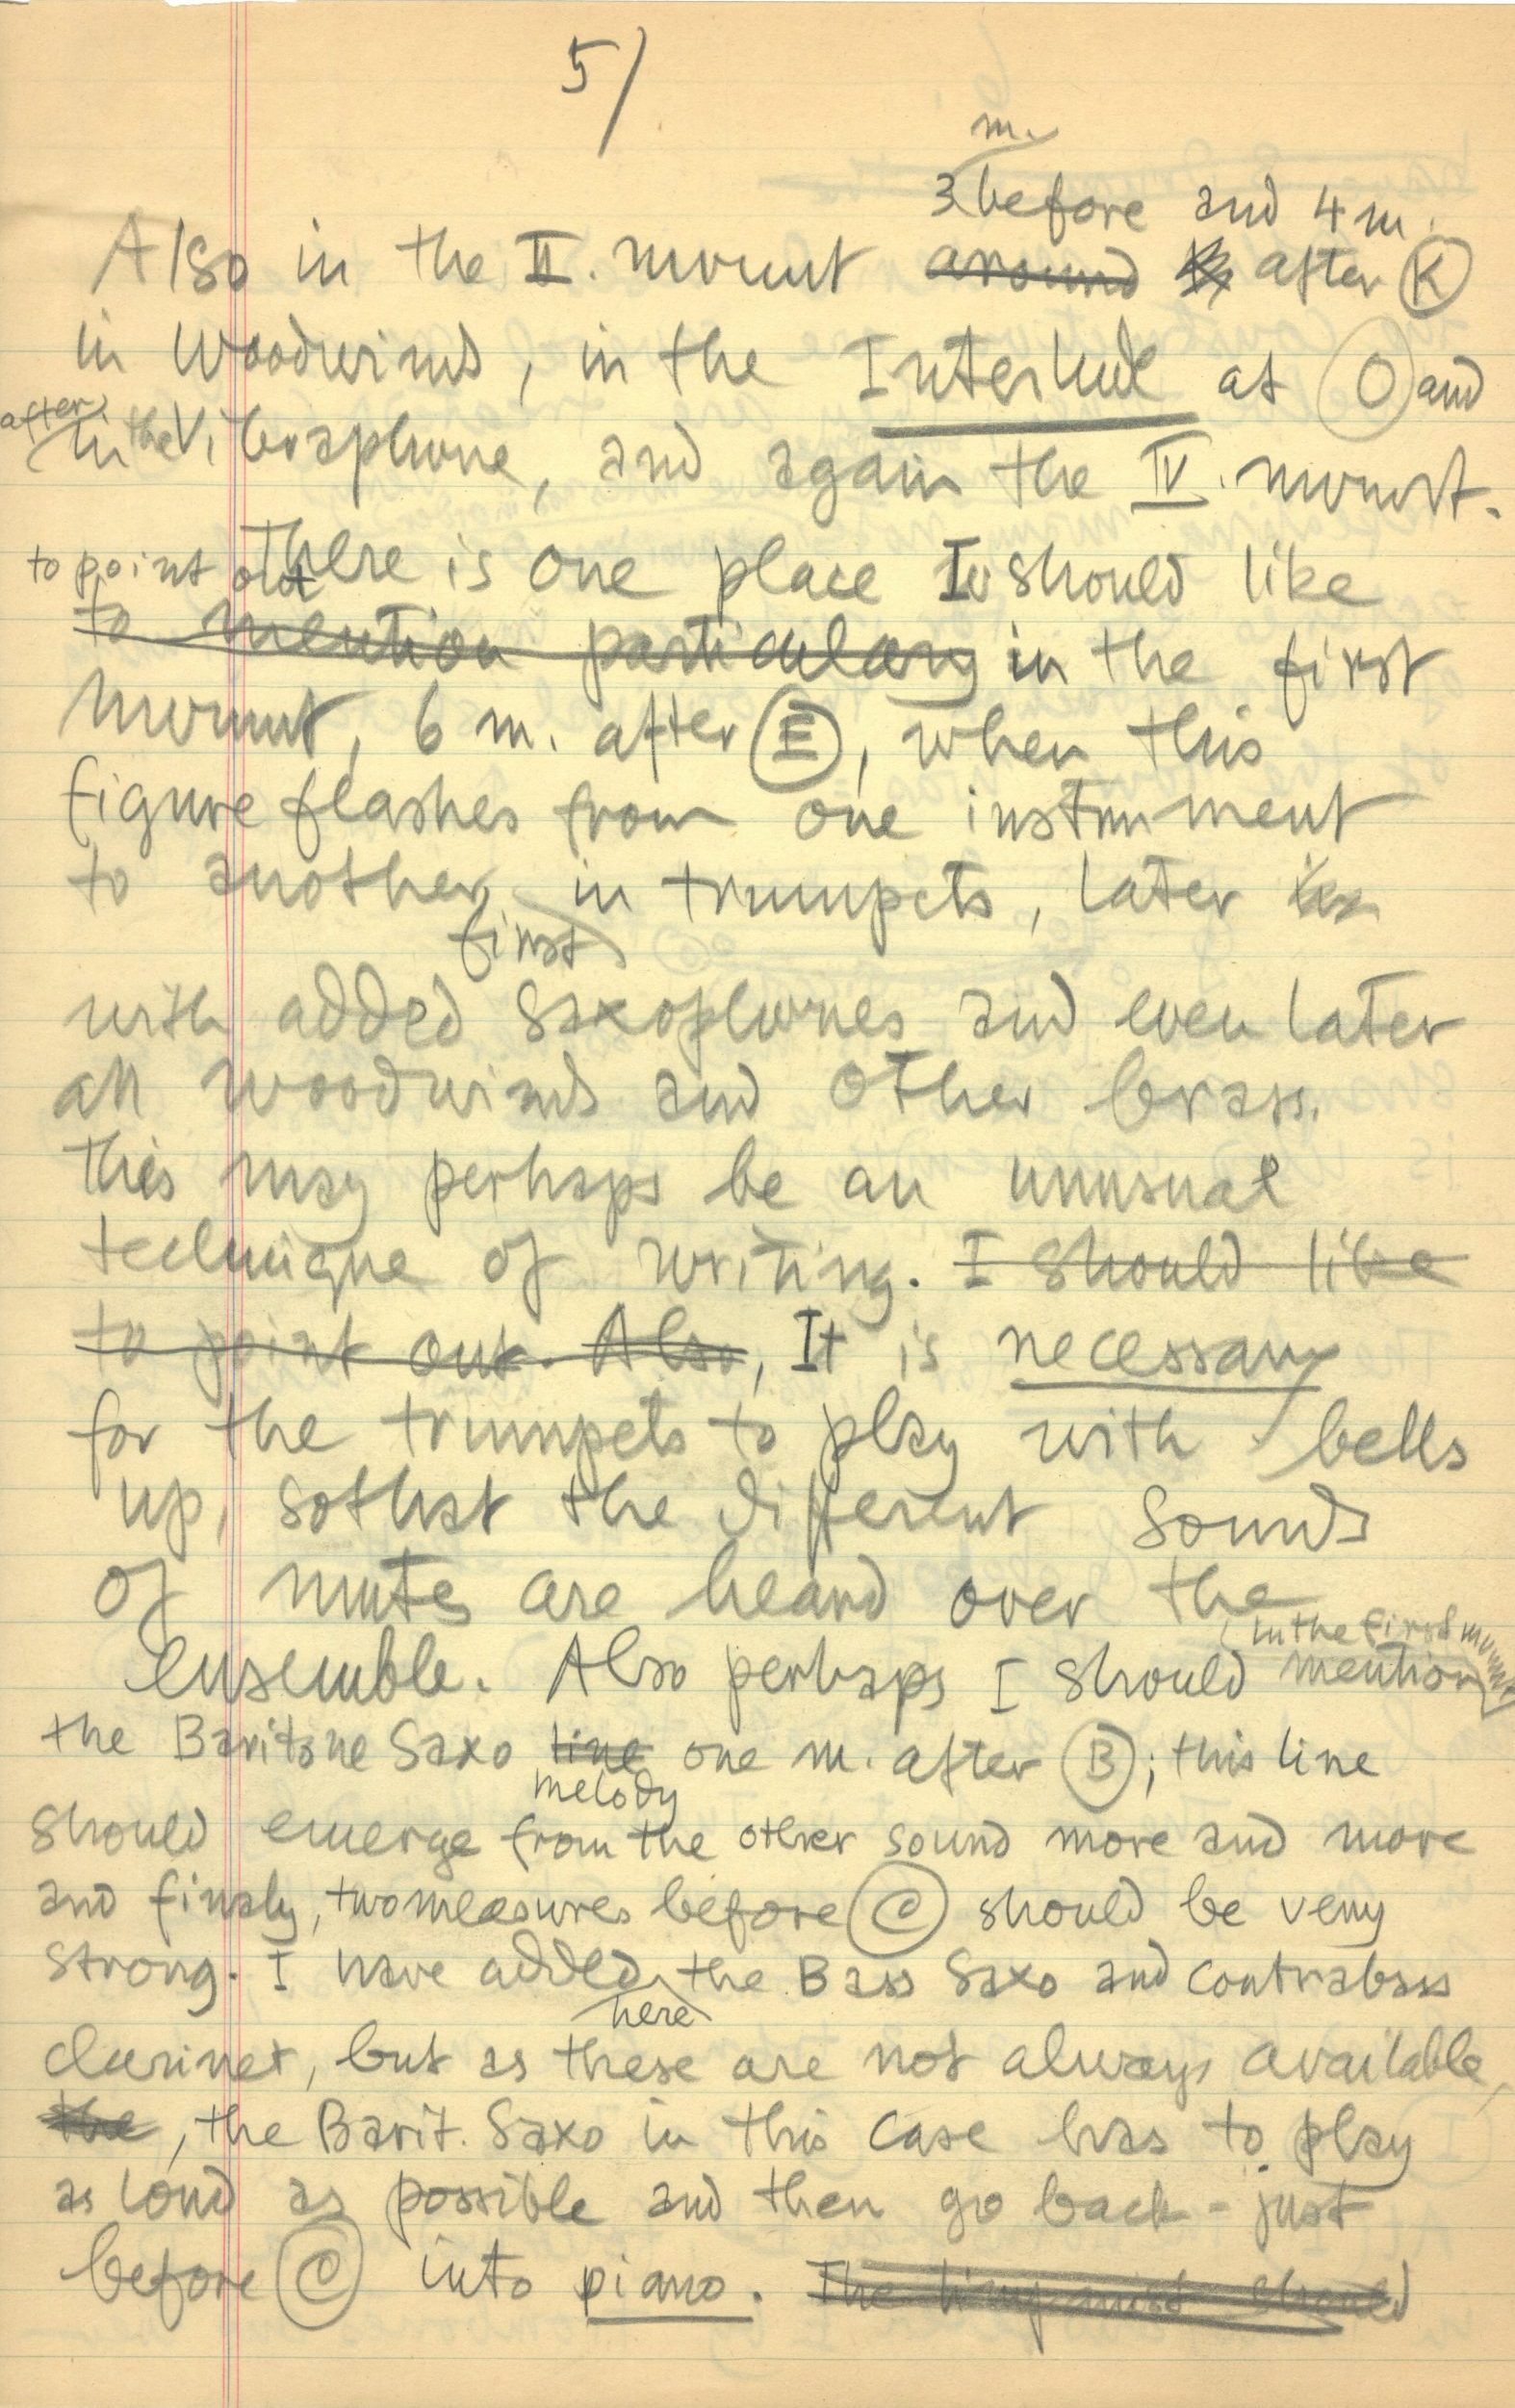 5/
m.
3 before and 4 m.
Also in the II. mvmnt around after K
in Woodwinds, in the Interlude at O and
after
in the Vibraphone, and again the IV. mvmnt.
There is one place I should like
to point out
to mention particulary in the first
mvmnt, 6 m. after E, when this
figure flashes from one instrument
to another, in trumpets, later in
first
with added saxophones and even later
all woodwinds and other brass.
This may perhaps be an unusual
technique of writing. I should like
to point out. Also, It is necessary
for the trumpets to play with bells
up, sothat the different sounds
of mutes are heard over the
in the first mvmnt
ensemble. Also perhaps I should mention
the Baritone Saxo line one m. after B; this line
melody
should emerge from the other sound more and more
and finaly, two measures before C should be very
strong. I have added the Bass Saxo and contrabass
here
clarinet, but as these are not always available,
the, the Barit. Saxo in this case has to play
as loud as possible and then go back - just
before C into piano. The timpanist should